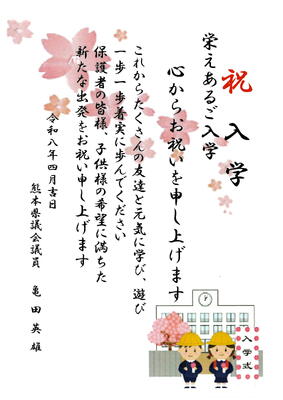 祝入学
栄えあるご入学
心からお祝いを申し上げます
これからたくさんの友達と元気に学び、遊び
一歩一歩着実に歩んでください
保護者の皆様、子供様の希望に満ちた
新たな出発をお祝い申し上げます
令和八年四月吉日
熊本県議会議員 亀田英雄
入学式